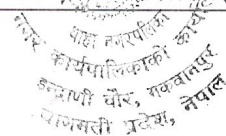 थाहा नगरपालिका
नगर कार्यपालिकाको कार्यालय
इन्द्रायणी चौर, मकवानपुर
बागमती प्रदेश, नेपाल